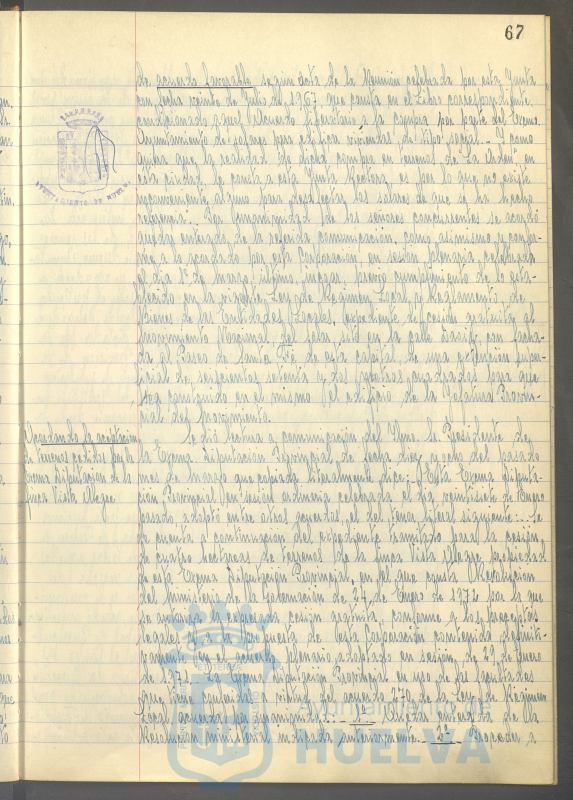 67
de acuerdo favorable según acta de la reunión celebrada por esta Junta
con fecha veinte de Julio del 1967 que consta en el Libro correspondiente,
condicionado aquel acuerdo a la compra por parte del Excmo.
Ayuntamiento de solares para edificar viviendas de tipo social.- Y como
quiera que la realidad de dicha compra en terrenos de "La Orden" en
esta ciudad, le consta a esta Junta Rectora, es por lo que no existe
inconveniente alguno para desafectar los solares de que se ha hecho
referencia". Por unanimidad de los señores concurrentes se acordó
quedar enterada de la referida comunicación, como asimismo, confor-
me a lo acordado por esta Corporación en sesión plenaria celebrada
el día 1º de marzo último, incoar previo cumplimiento de lo esta-
blecido en la vigente Ley de Régimen Local y Reglamento de
Bienes de las Entidades Locales, expediente de cesión gratuita al
Movimiento Nacional del solar sito en la calle con facha-
da al Paseo de Santa Fé de esta capital, de una extensión super-
ficial de seiscientos setenta y dos metros cuadrados para que
sea construido en el mismo el edificio de la Jefatura Provin-
cial del Movimiento.
Acordando la aceptación
de terrenos cedidos por la
Excma. Diputación de la
finca Vista Alegre
Se dió lectura a comunicación del Iltmo. Sr. Presidente de
la Excma. Diputación Provincial de fecha diez y ocho del pasado
mes de marzo que copiada literalmente dice: "Esta Excma. Diputa-
ción Provincial en sesión ordinaria celebrada el día veintisiete de Enero
pasado, adoptó entre otros acuerdos, el del tenor literal siguiente: Se
dá cuenta a continuación del expediente tramitado para la cesión
de cuatro hectáreas de terrenos de la finca Vista Alegre propiedad
de esta Excma. Diputación Provincial, en el que consta Resolución
del Ministerio de la Gobernación de 24 de Enero de 1972 por la que
se autoriza la expresada cesión gratuita, conforme a los preceptos
legales y a la propuesta de esta Corporación contenida definiti-
vamente en el acuerdo plenario adoptado en sesión de 29 de Enero
de 1971. La Excma. Diputación Provincial en uso de las facultades
que tiene conferidas a virtud del artículo 270 de la Ley de Régimen
Local, acuerda por unanimidad: 1º Quedar enterada de la
Resolución ministerial indicada anteriormente. 2º Proceder a
AYUNTAMIENTO DE HUELVA
Ayuntamiento de
HUELVA